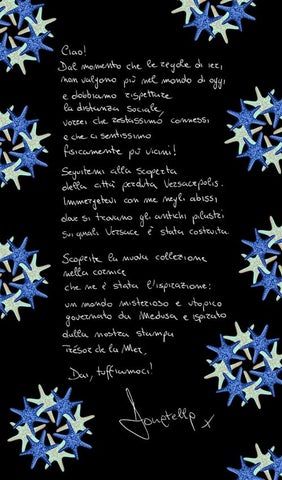 Ciao!
Dal momento che le regole di ieri,
non valgono più nel mondo di oggi
e dobbiamo rispettare
la distanza sociale,
vorrei che restassimo connessi
e che ci sentissimo
fisicamente più vicini!
Seguitemi alla scoperta
della città perduta Versacepolis.
Immergetevi con me negli abissi
dove si trovano gli antichi pilastri
sui quali Versace è stata costruita.
Scoprite la nuova collezione
nella cornice
che ne è stata l'ispirazione:
un mondo misterioso e utopico
governato da Medusa e ispirato
dalla nostra stampa
Trésor de la Mer,
Dai, tuffiamoci!
Donatella x